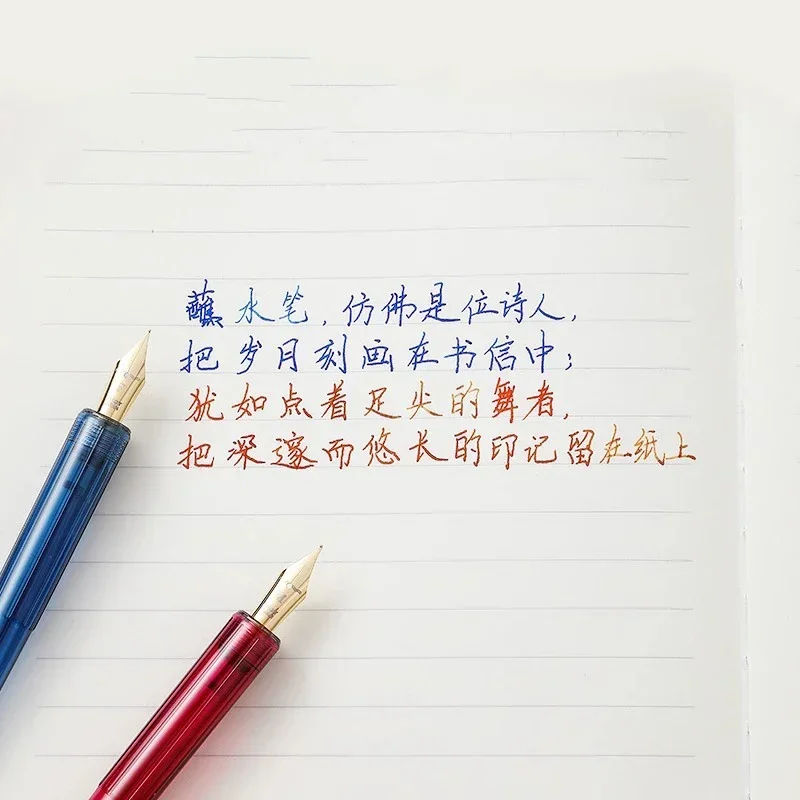 蘸水笔，仿佛是位诗人，
把岁月刻画在书信中；
犹如点着足尖的舞者，
把深邃而悠长的印记留在纸上